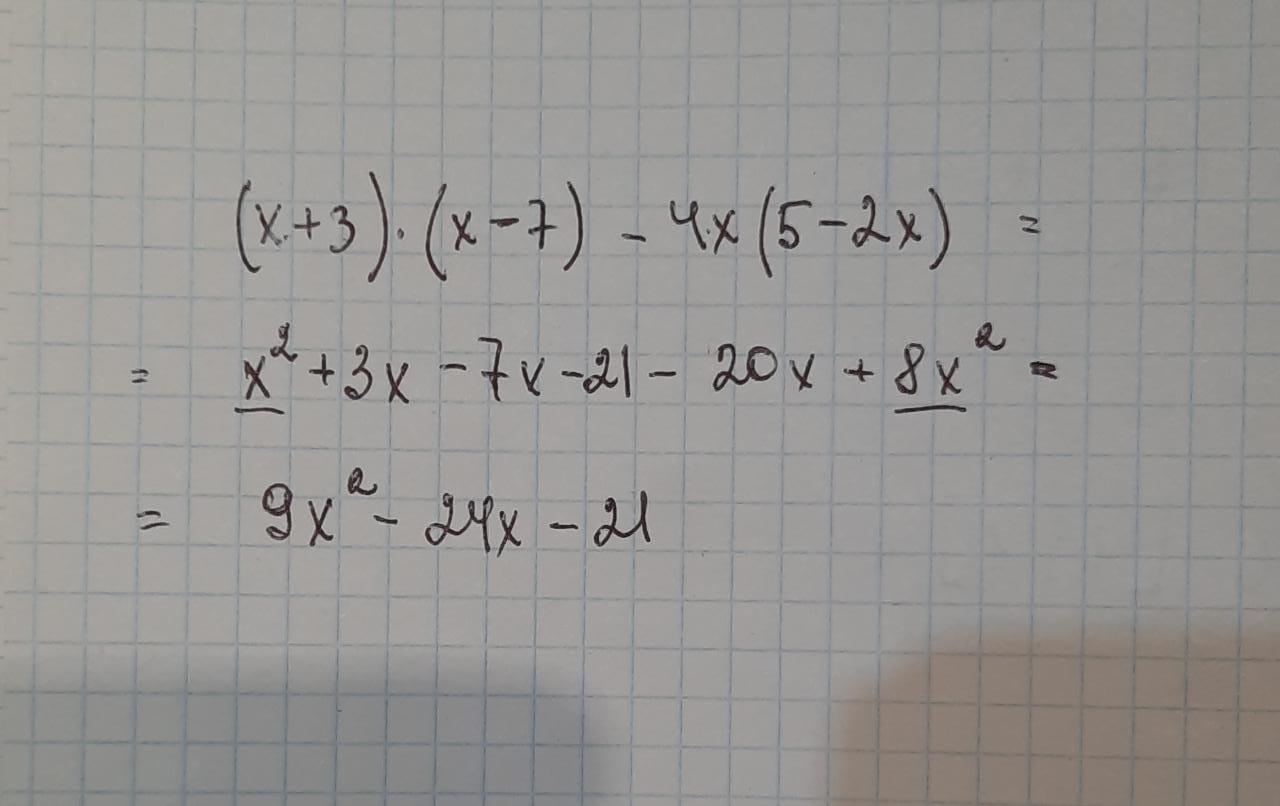 (x+3)·(x-7) - 4x(5-2x) =
= x² + 3x - 7x - 21 - 20x + 8x² =
= 9x² - 24x - 21